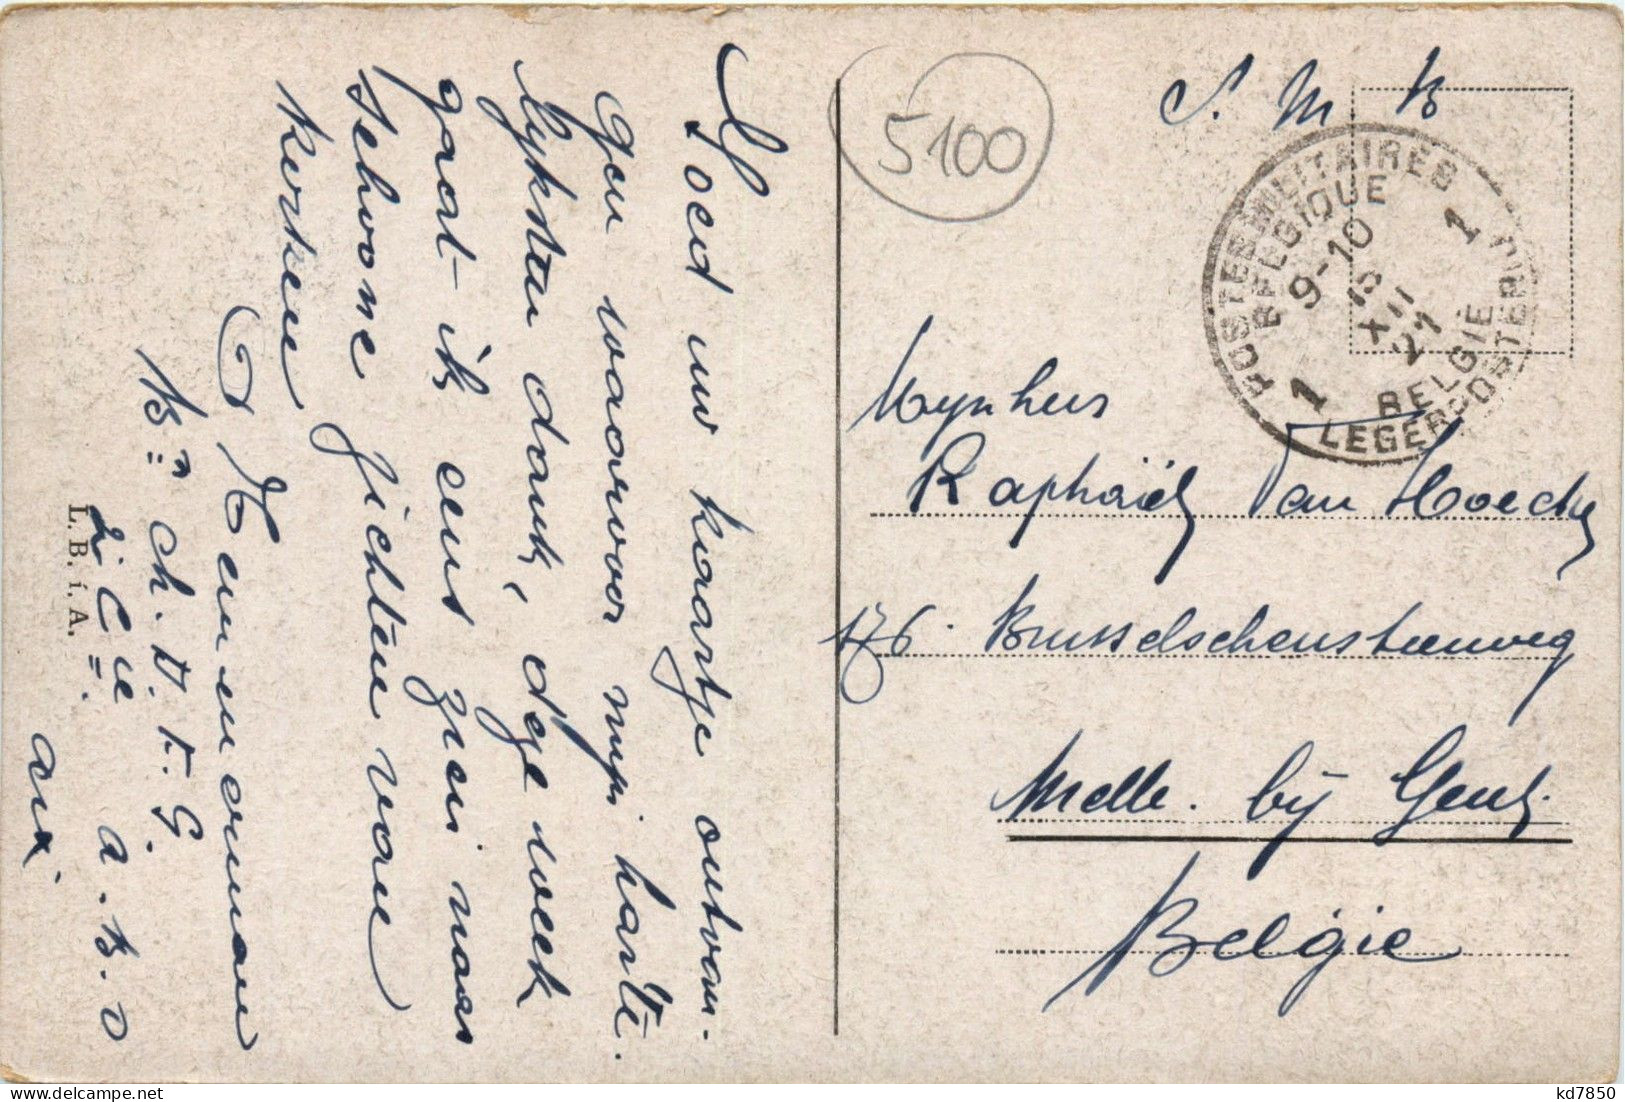 Goed uw kaartje ontvan-
gen waarvoor mijn harte.
lyksten dank, dge week
gaat ik eens zien naar
schoone zichten van
Kerken
H
Bon ch. D. F. G.
2. Cie a. B. O
aix
L. B. i. A.
5100
S. M B
POSTES MILITAIRES
BELGIQUE
9-10
XII
21
1 1
BELGIE
LEGERPOSTERIJ
Mynheer
Raphaël Van Hoecke
176. Brusselschensteenweg
Melle. bij Gent.
Belgie
kd7850